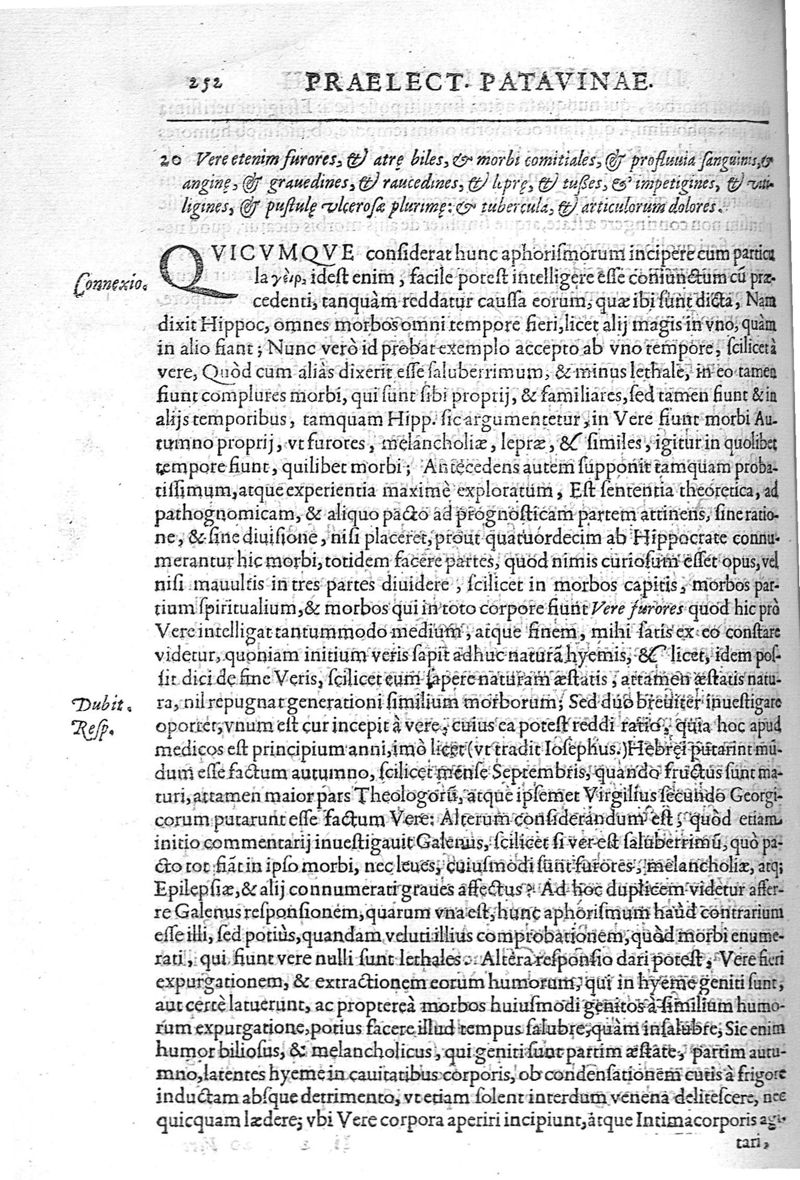 252 PRAELECT. PATAVINAE.
20 Vere etenim furores, & atrę biles, & morbi comitiales, & profluuia sanguinis, &
anginę, & grauedines, & raucedines, & leprę, & tußes, & impetigines, & viti-
ligines, & pustulę vlcerosæ plurimę: & tubercula, & articulorum dolores.
Connexio.
QVICVMQVE considerat hunc aphorismorum incipere cum particu
la γὰρ, idest enim, facile potest intelligere esse coniunctum cū præ-
cedenti, tanquàm reddatur caussa eorum, quæ ibi sunt dicta, Nam
dixit Hippoc, omnes morbos omni tempore fieri, licet alij magis in vno, quàm
in alio fiant; Nunc verò id probat exemplo accepto ab vno tempore, scilicet à
vere, Quòd cum aliàs dixerit esse saluberrimum, & minus lethale, in eo tamen
fiunt complures morbi, qui sunt sibi proprij, & familiares, sed tamen fiunt & in
alijs temporibus, tamquam Hipp. sic argumentetur, in Vere fiunt morbi Au-
tumno proprij, vt furores, melancholiæ, lepræ, & similes, igitur in quolibet
tempore fiunt, quilibet morbi; Antecedens autem supponit tamquam proba-
tissimum, atque experientia maximè exploratum, Est sententia theoretica, ad
pathognomicam, & aliquo pacto ad prognosticam partem attinens, sine ratio-
ne, & sine diuisione, nisi placeret, prout quatuordecim ab Hippocrate connu-
merantur hic morbi, totidem facere partes, quod nimis curiosum esset opus, vel
nisi mauultis in tres partes diuidere, scilicet in morbos capitis, morbos par-
tium spiritualium, & morbos qui in toto corpore fiunt Vere furores quod hic prò
Vere intelligat tantummodo medium, atque finem, mihi satis ex eo constare
videtur, quoniam initium veris sapit adhuc naturā hyemis, & licet, idem pos-
sit dici de fine Veris, scilicet eum sapere naturam æstatis, attamen æstatis natu-
Dubit.
ra, nil repugnat generationi similium morborum; Sed duo breuiter inuestigare
Resp.
oportet, vnum est cur incepit à vere, cuius ea potest reddi ratio, quia hoc apud
medicos est principium anni, imò licet (vt tradit Iosephus.) Hebręi putarint mū-
dum esse factum autumno, scilicet mense Septembris, quando fructus sunt ma-
turi, attamen maior pars Theologorū, atque ipsemet Virgilius secundo Georgi-
corum putarunt esse factum Vere: Alterum considerandum est; quòd etiam
initio commentarij inuestigauit Galenus, scilicet si ver est saluberrimū, quò pa-
cto tot fiāt in ipso morbi, nec leues, cuiusmodi sunt furores, melancholiæ, atq;
Epilepsiæ, & alij connumerati graues affectus? Ad hoc duplicem videtur affer-
re Galenus responsionem, quarum vna est, hunc aphorismum haùd contrarium
esse illi, sed potiùs, quandam veluti illius comprobationem, quòd morbi enume-
rati, qui fiunt vere nulli sunt lethales. Altera responsio dari potest, Vere fieri
expurgationem, & extractionem eorum humorum, qui in hyeme geniti sunt,
aut certè latuerunt, ac proptereà morbos huiusmodi genitos à similium humo-
rum expurgatione, potius facere illud tempus salubre, quàm insalubre, Sic enim
humor biliosus, & melancholicus, qui geniti sunt partim æstate, partim autu-
mno, latentes hyeme in cauitatibus corporis, ob condensationem cutis à frigore
inductam absque detrimento, vt etiam solent interdum venena delitescere, nec
quicquam lædere; vbi Vere corpora aperiri incipiunt, atque Intima corporis agi-
tari,